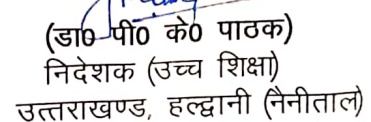 (डा0 पी0 के0 पाठक)
निदेशक (उच्च शिक्षा)
उत्तराखण्ड, हल्द्वानी (नैनीताल)